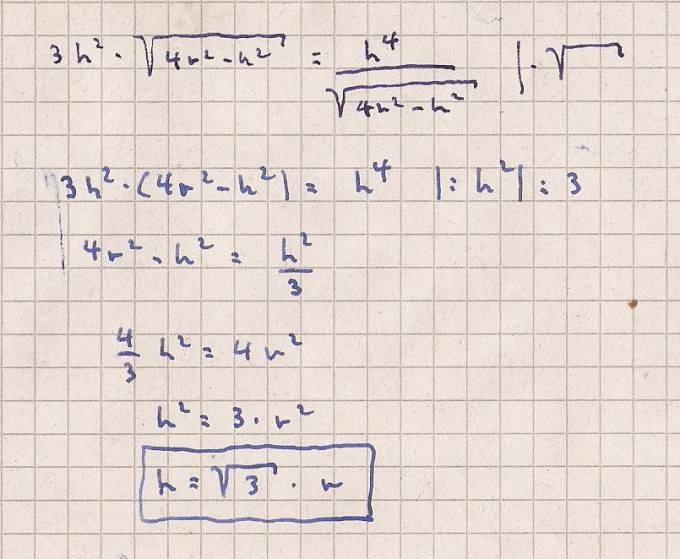 3h² · √(4r² - h²) = h⁴ / √(4r² - h²) | · √
3h² · (4r² - h²) = h⁴ | : h² | : 3
4r² - h² = h² / 3
4/3 h² = 4r²
h² = 3 · r²
h = √3 · r